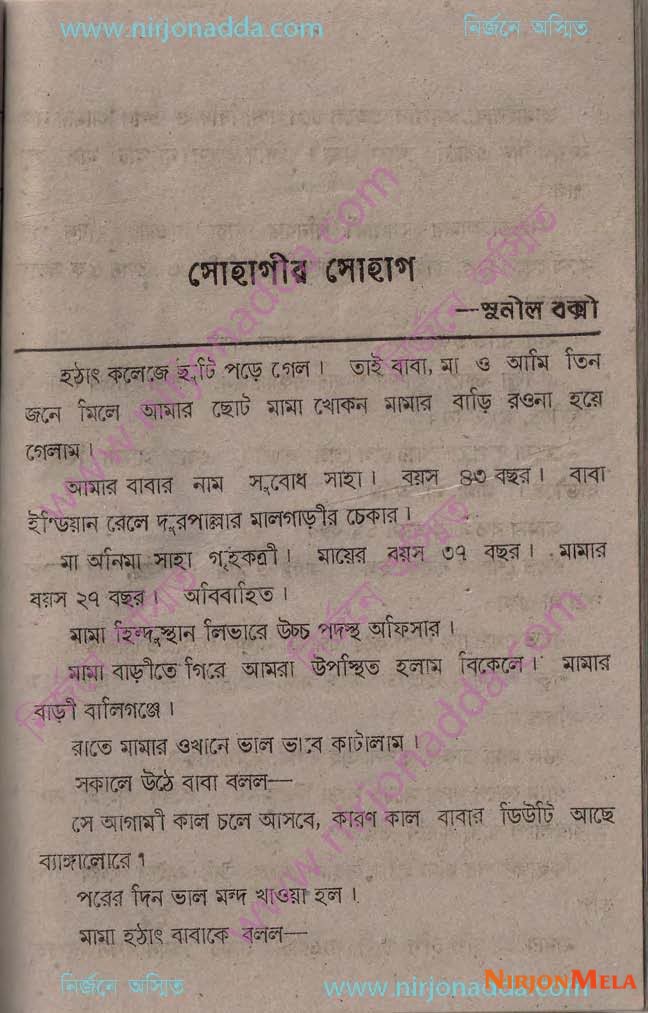 www.nirjonadda.com নির্জনে অস্মিত
সোহাগীর সোহাগ
—সুনীল বক্সী
হঠাৎ কলেজে ছুটি পড়ে গেল। তাই বাবা, মা ও আমি তিন
জনে মিলে আমার ছোট মামা খোকন মামার বাড়ি রওনা হয়ে
গেলাম।
আমার বাবার নাম সুবোধ সাহা। বয়স ৪৩ বছর। বাবা
ইণ্ডিয়ান রেলে দূরপাল্লার মালগাড়ীর চেকার।
মা অনিমা সাহা গৃহকর্ত্রী। মায়ের বয়স ৩৭ বছর। মামার
বয়স ২৭ বছর। অবিবাহিত।
মামা হিন্দুস্থান লিভারে উচ্চ পদস্থ অফিসার।
মামা বাড়ীতে গিরে আমরা উপস্থিত হলাম বিকেলে। মামার
বাড়ী বালিগঞ্জে।
রাতে মামার ওখানে ভাল ভাবে কাটালাম।
সকালে উঠে বাবা বলল—
সে আগামী কাল চলে আসবে, কারণ কাল বাবার ডিউটি আছে
ব্যাঙ্গালোরে।
পরের দিন ভাল মন্দ খাওয়া হল।
মামা হঠাৎ বাবাকে বলল—
www.nirjonadda.com নির্জনে অস্মিত
নির্জনে অস্মিত www.nirjonadda.com
নির্জনে অস্মিত www.nirjonadda.com
NIRJONMELA